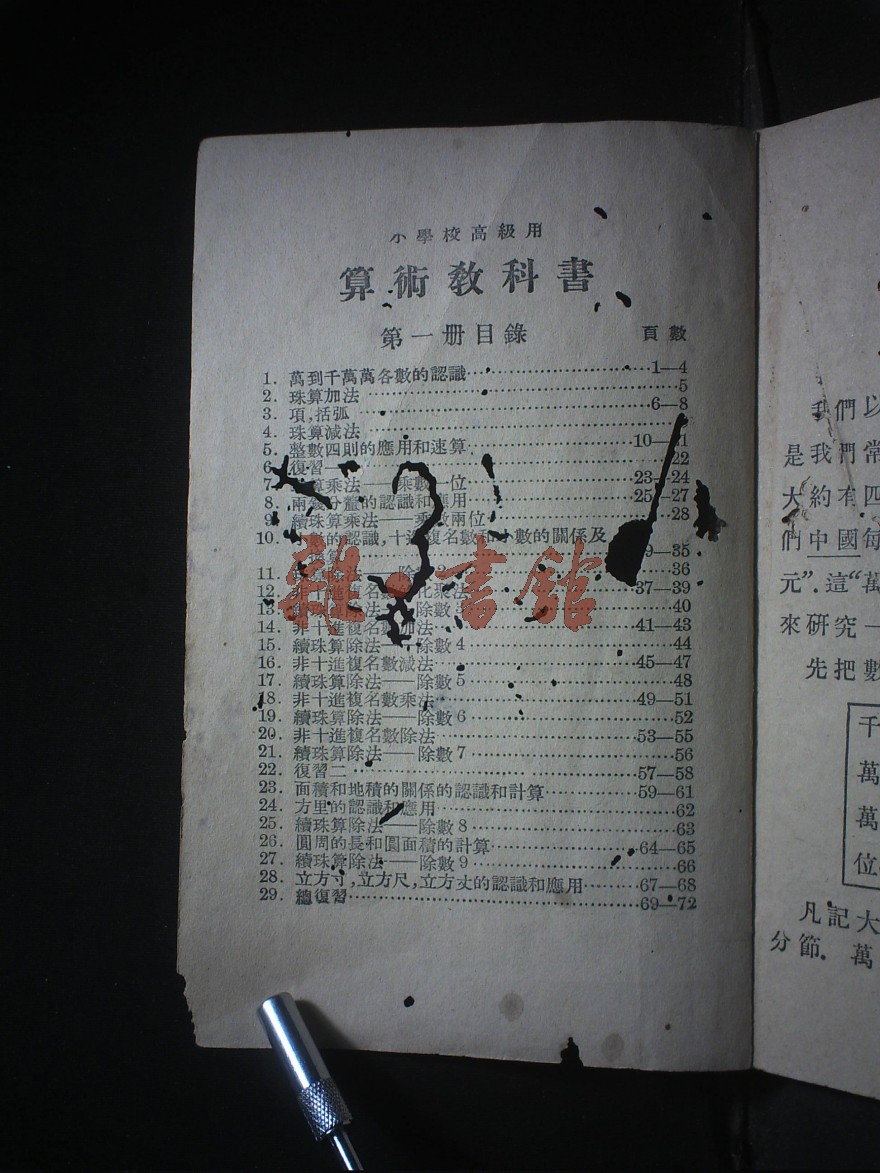 小學校高級用
算術教科書
第一册目錄 頁數
1. 萬到千萬萬各數的認識 1—4
2. 珠算加法 5
3. 項,括弧 6—8
4. 珠算減法
5. 整數四則的應用和速算 10—21
6. 復習一 22
7. 算乘法——乘數一位 23—24
8. 兩錢分釐的認識和應用 25—27
9. 續珠算乘法——乘數兩位 28
10. 小數的認識,十進複名數和小數的關係及
算 9—35
11. 除法——除 2 36
12. 非十進複名數 化乘法 37—39
13. 續珠算除法——除數3 40
14. 非十進複名數加法 41—43
15. 續珠算除法——除數4 44
16. 非十進複名數減法 45—47
17. 續珠算除法——除數5 48
18. 非十進複名數乘法 49—51
19. 續珠算除法——除數6 52
20. 非十進複名數除法 53—55
21. 續珠算除法——除數7 56
22. 復習二 57—58
23. 面積和地積的關係的認識和計算 59—61
24. 方里的認識和應用 62
25. 續珠算除法——除數8 63
26. 圓周的長和圓面積的計算 64—65
27. 續珠算除法——除數9 66
28. 立方寸,立方尺,立方丈的認識和應用 67—68
29. 總復習 69—72
雜·書館
我們以
是我們常
大約有四
們中國每
元”.這“萬
來研究一
先把數
千
萬
萬
位
凡記大
分節. 萬